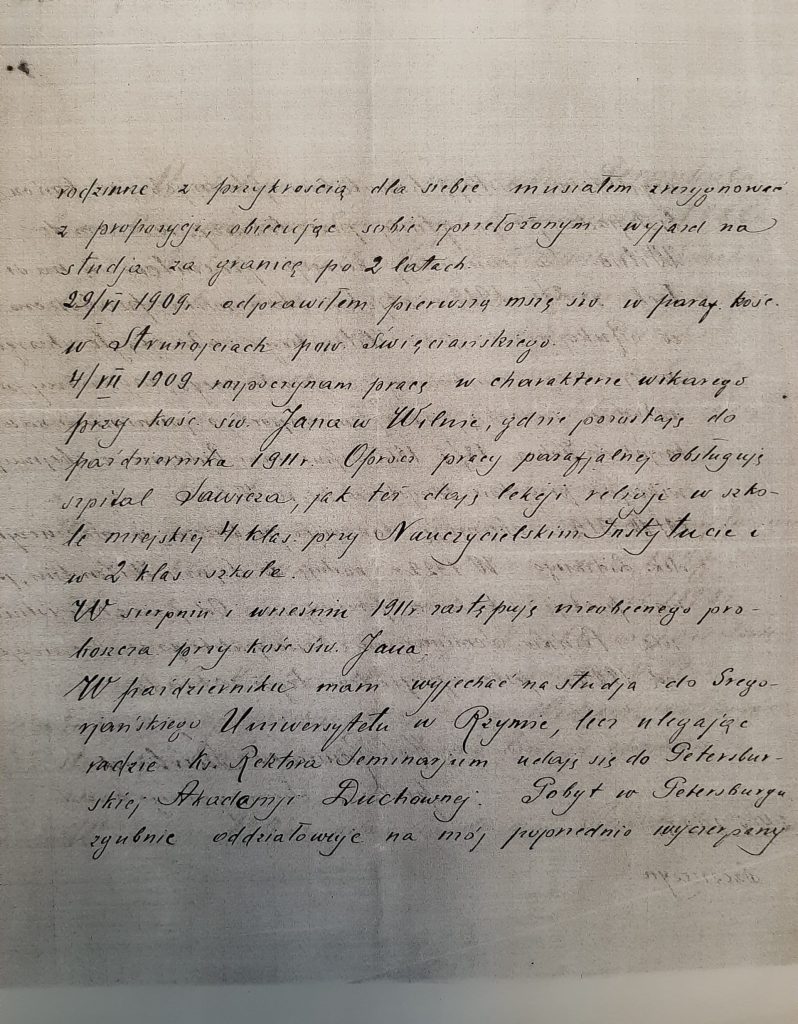 rodzinne z przykrością dla siebie musiałem zrezygnować
z propozycji, obiecując sobie i przełożonym wyjazd na
studja za granicę po 2 latach.
29/VI 1909r. odprawiłem pierwszą mszę św. w paraf. kośc.
w Strunojciach pow. Święciańskiego.
4/VII 1909 rozpoczynam pracę w charakterze wikarego
przy kośc. św. Jana w Wilnie, gdzie pozostają do
października 1911r. Oprócz pracy parafjalnej obsługuję
szpital Sawicza, jak też daję lekcji religji w szko-
le miejskiej 4 klas. przy Nauczycielskim Instytucie i
w 2 klas. szkole.
W sierpniu i wrześniu 1911r. zastępuję nieobecnego pro-
boszcza przy kośc. św. Jana.
W październiku mam wyjechać na studja do Grego-
rjańskiego Uniwersytetu w Rzymie, lecz ulegając
radzie ks. Rektora Seminarjum udaję się do Petersbur-
skiej Akademji Duchownej. Pobyt w Petersburgu
zgubnie oddziaływuje na mój poprzednio wyczerpany